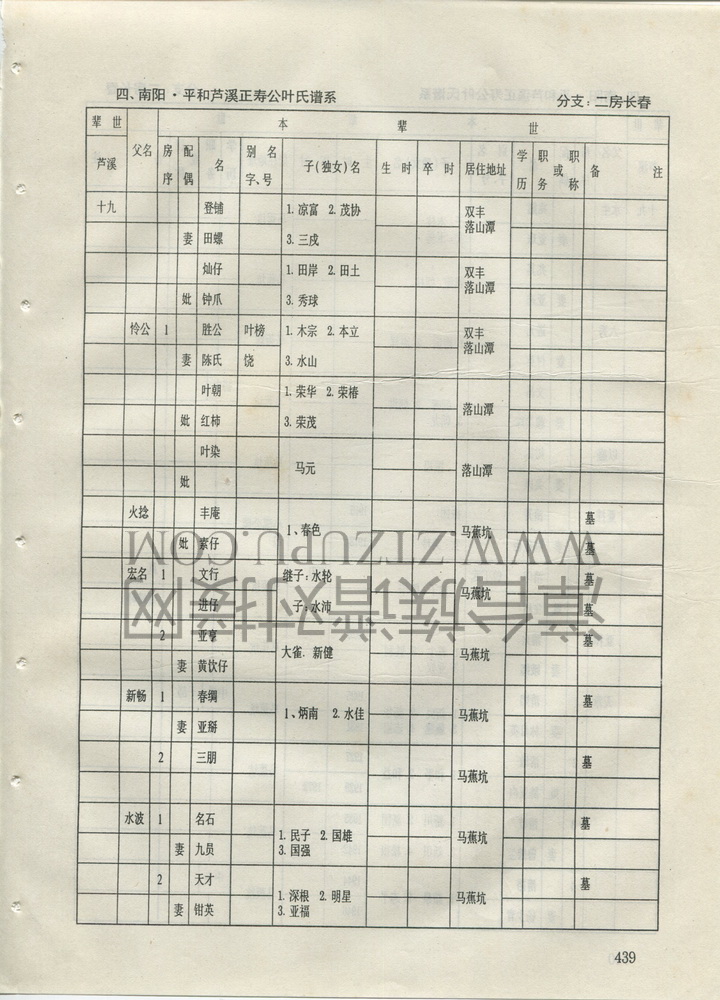 四、南阳·平和芦溪正寿公叶氏谱系 分支：二房长春
辈世 本 辈 世
芦溪 父名 房序 配偶 名 别名字、号 子(独女)名 生时 卒时 居住地址 学历 职务或职称 备注
十九 登铺 1.凉富 2.茂协 双丰
妻 田螺 3.三戍 落山潭
灿仔 1.田岸 2.田土 双丰
妣 钟爪 3.秀球 落山潭
怜公 1 胜公 叶榜 1.木宗 2.本立 双丰
妻 陈氏 饶 3.水山 落山潭
叶朝 1.荣华 2.荣椿
妣 红柿 3.荣茂 落山潭
叶染
妣 马元 落山潭
火捻 丰庵 1、春色 马蕉坑 墓
妣 素仔 墓
宏名 1 文行 继子：水轮 马蕉坑 墓
进仔 子：水沛 墓
2 亚亨 大雀. 新健 马蕉坑
妻 黄饮仔
新畅 1 春绸 1、炳南 2.水佳 马蕉坑 墓
妻 亚掰
2 三朋 马蕉坑 墓
水波 1 名石 1.民子 2.国雄 马蕉坑 墓
妻 九员 3.国强
2 天才 1.深根 2.明星 马蕉坑 墓
妻 钳英 3.亚福
439
WWW.ZTZUPU.COM
漳台族谱对接网